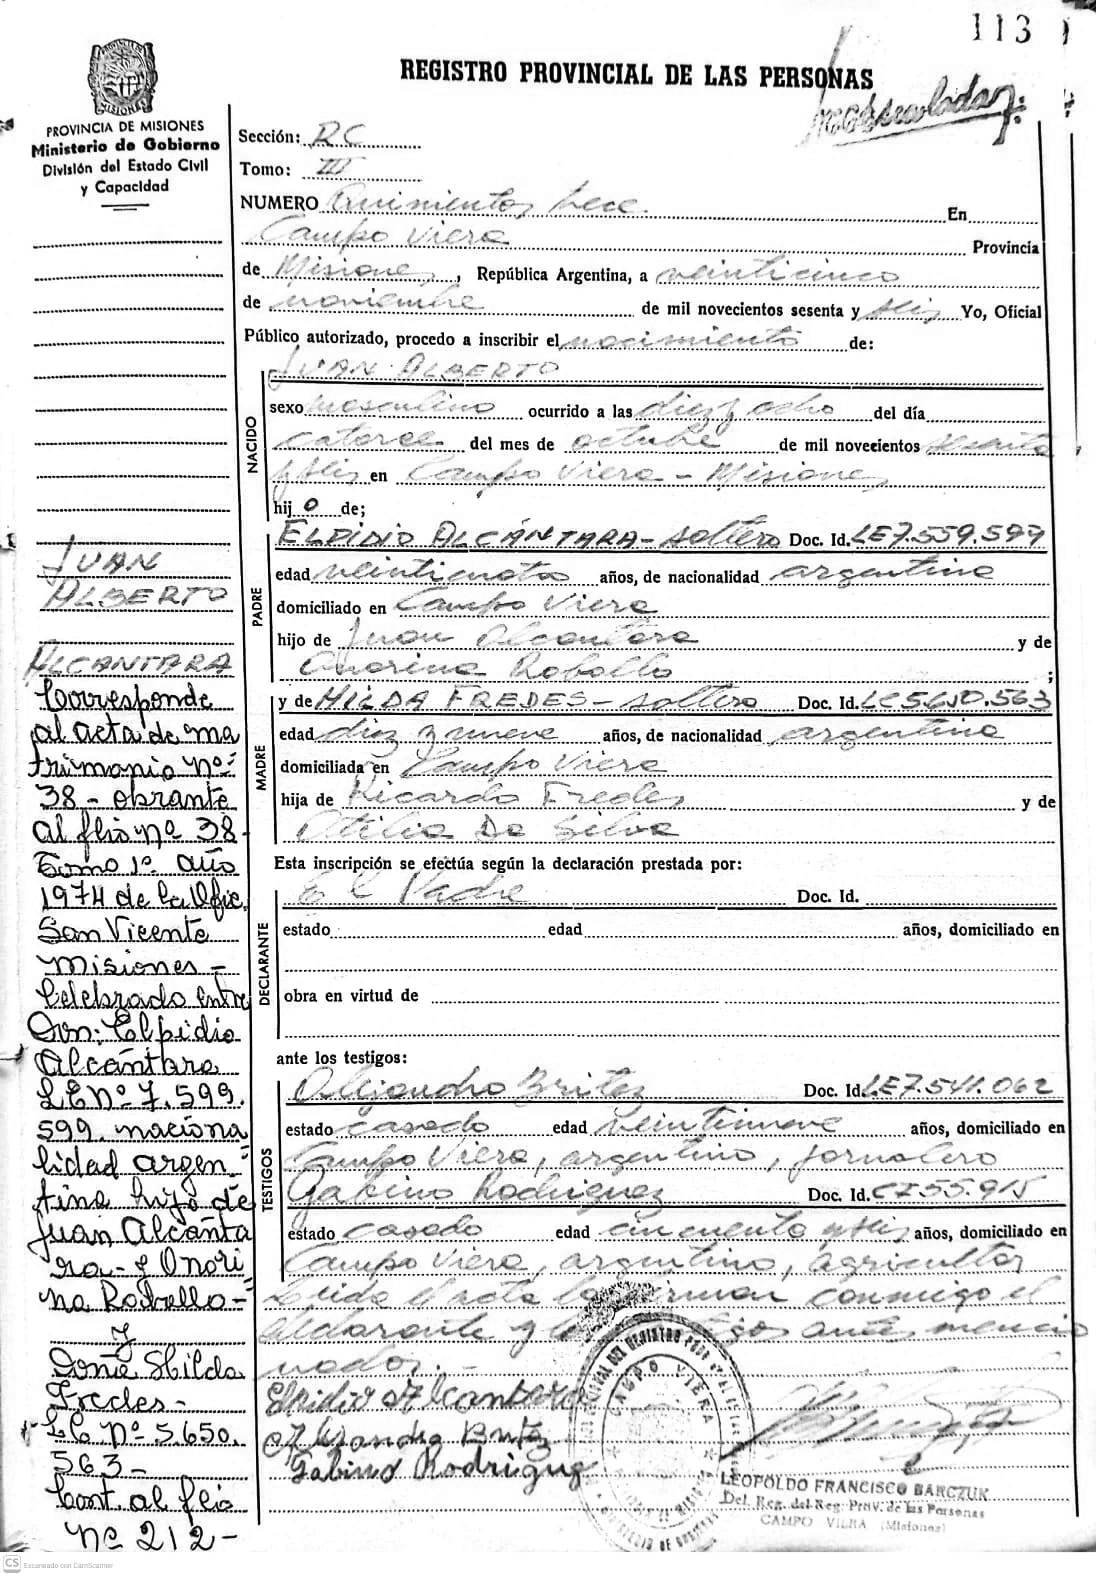 113
REGISTRO PROVINCIAL DE LAS PERSONAS
PROVINCIA DE MISIONES
Ministerio de Gobierno
División del Estado Civil
y Capacidad
Sección: RC
Tomo: III
NUMERO Quinientos trece En
Campo Viera Provincia
de Misiones, República Argentina, a veinticinco
de noviembre de mil novecientos sesenta y seis Yo, Oficial
Público autorizado, procedo a inscribir el nacimiento de:
JUAN ALBERTO
NACIDO
sexo masculino ocurrido a las diez y ocho del día
catorce del mes de octubre de mil novecientos sesenta
y seis en Campo Viera - Misiones
hij o de;
PADRE
ELPIDIO ALCÁNTARA - soltero Doc. Id. LE7.559.599
edad veinticuatro años, de nacionalidad argentina
domiciliado en Campo Viera
hijo de Juan Alcantara y de
Onorina Roballo ;
MADRE
y de HILDA FREDES - soltera Doc. Id. LC5.650.563
edad diez y nueve años, de nacionalidad argentina
domiciliada en Campo Viera
hija de Ricardo Fredes y de
Otilia Da Silva
Esta inscripción se efectúa según la declaración prestada por:
DECLARANTE
El Padre Doc. Id.
estado edad años, domiciliado en
obra en virtud de
ante los testigos:
TESTIGOS
Alejandro Britez Doc. Id. LE7.541.062
estado casado edad veintinueve años, domiciliado en
Campo Viera, argentino, jornalero
Gabino Rodriguez Doc. Id. CI55.915
estado casado edad cincuenta y seis años, domiciliado en
Campo Viera, argentino, agricultor
Leida el acta la firman conmigo el
declarante y los testigos antes mencio
nados.-
Elpidio Alcantara
Alejandro Britez
Gabino Rodriguez
CAMPO VIERA
LEOPOLDO FRANCISCO BARCZUK
Del. Reg. del Reg. Prov. de las Personas
CAMPO VIERA (Misiones)
JUAN
ALBERTO
ALCANTARA
Corresponde
al acta de ma
trimonio Nº:
38 - obrante
al flio nº 38-
Tomo 1º año
1974 de la Ofic.
San Vicente
Misiones -
Celebrado entre
Don: Elpidio
Alcántara
LE Nº 7.599.
599. naciona
lidad argen
tina hijo de
Juan Alcánta
ra - y Onori
na Roballo -
y
Doña Hilda
Fredes -
LC Nº 5.650.
563 -
Cont. al flio
Nº 212 -
CS Escaneado con CamScanner